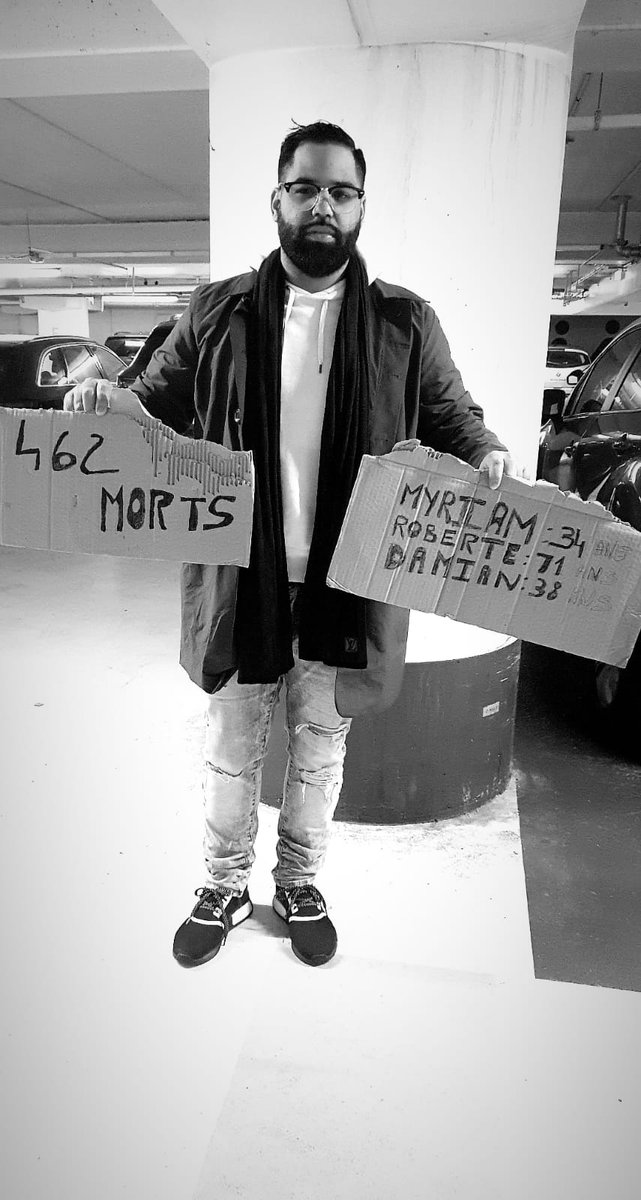 462
MORTS
MYRIAM : 34 ANS
ROBERTE : 71 ANS
DAMIAN : 38 ANS
LV